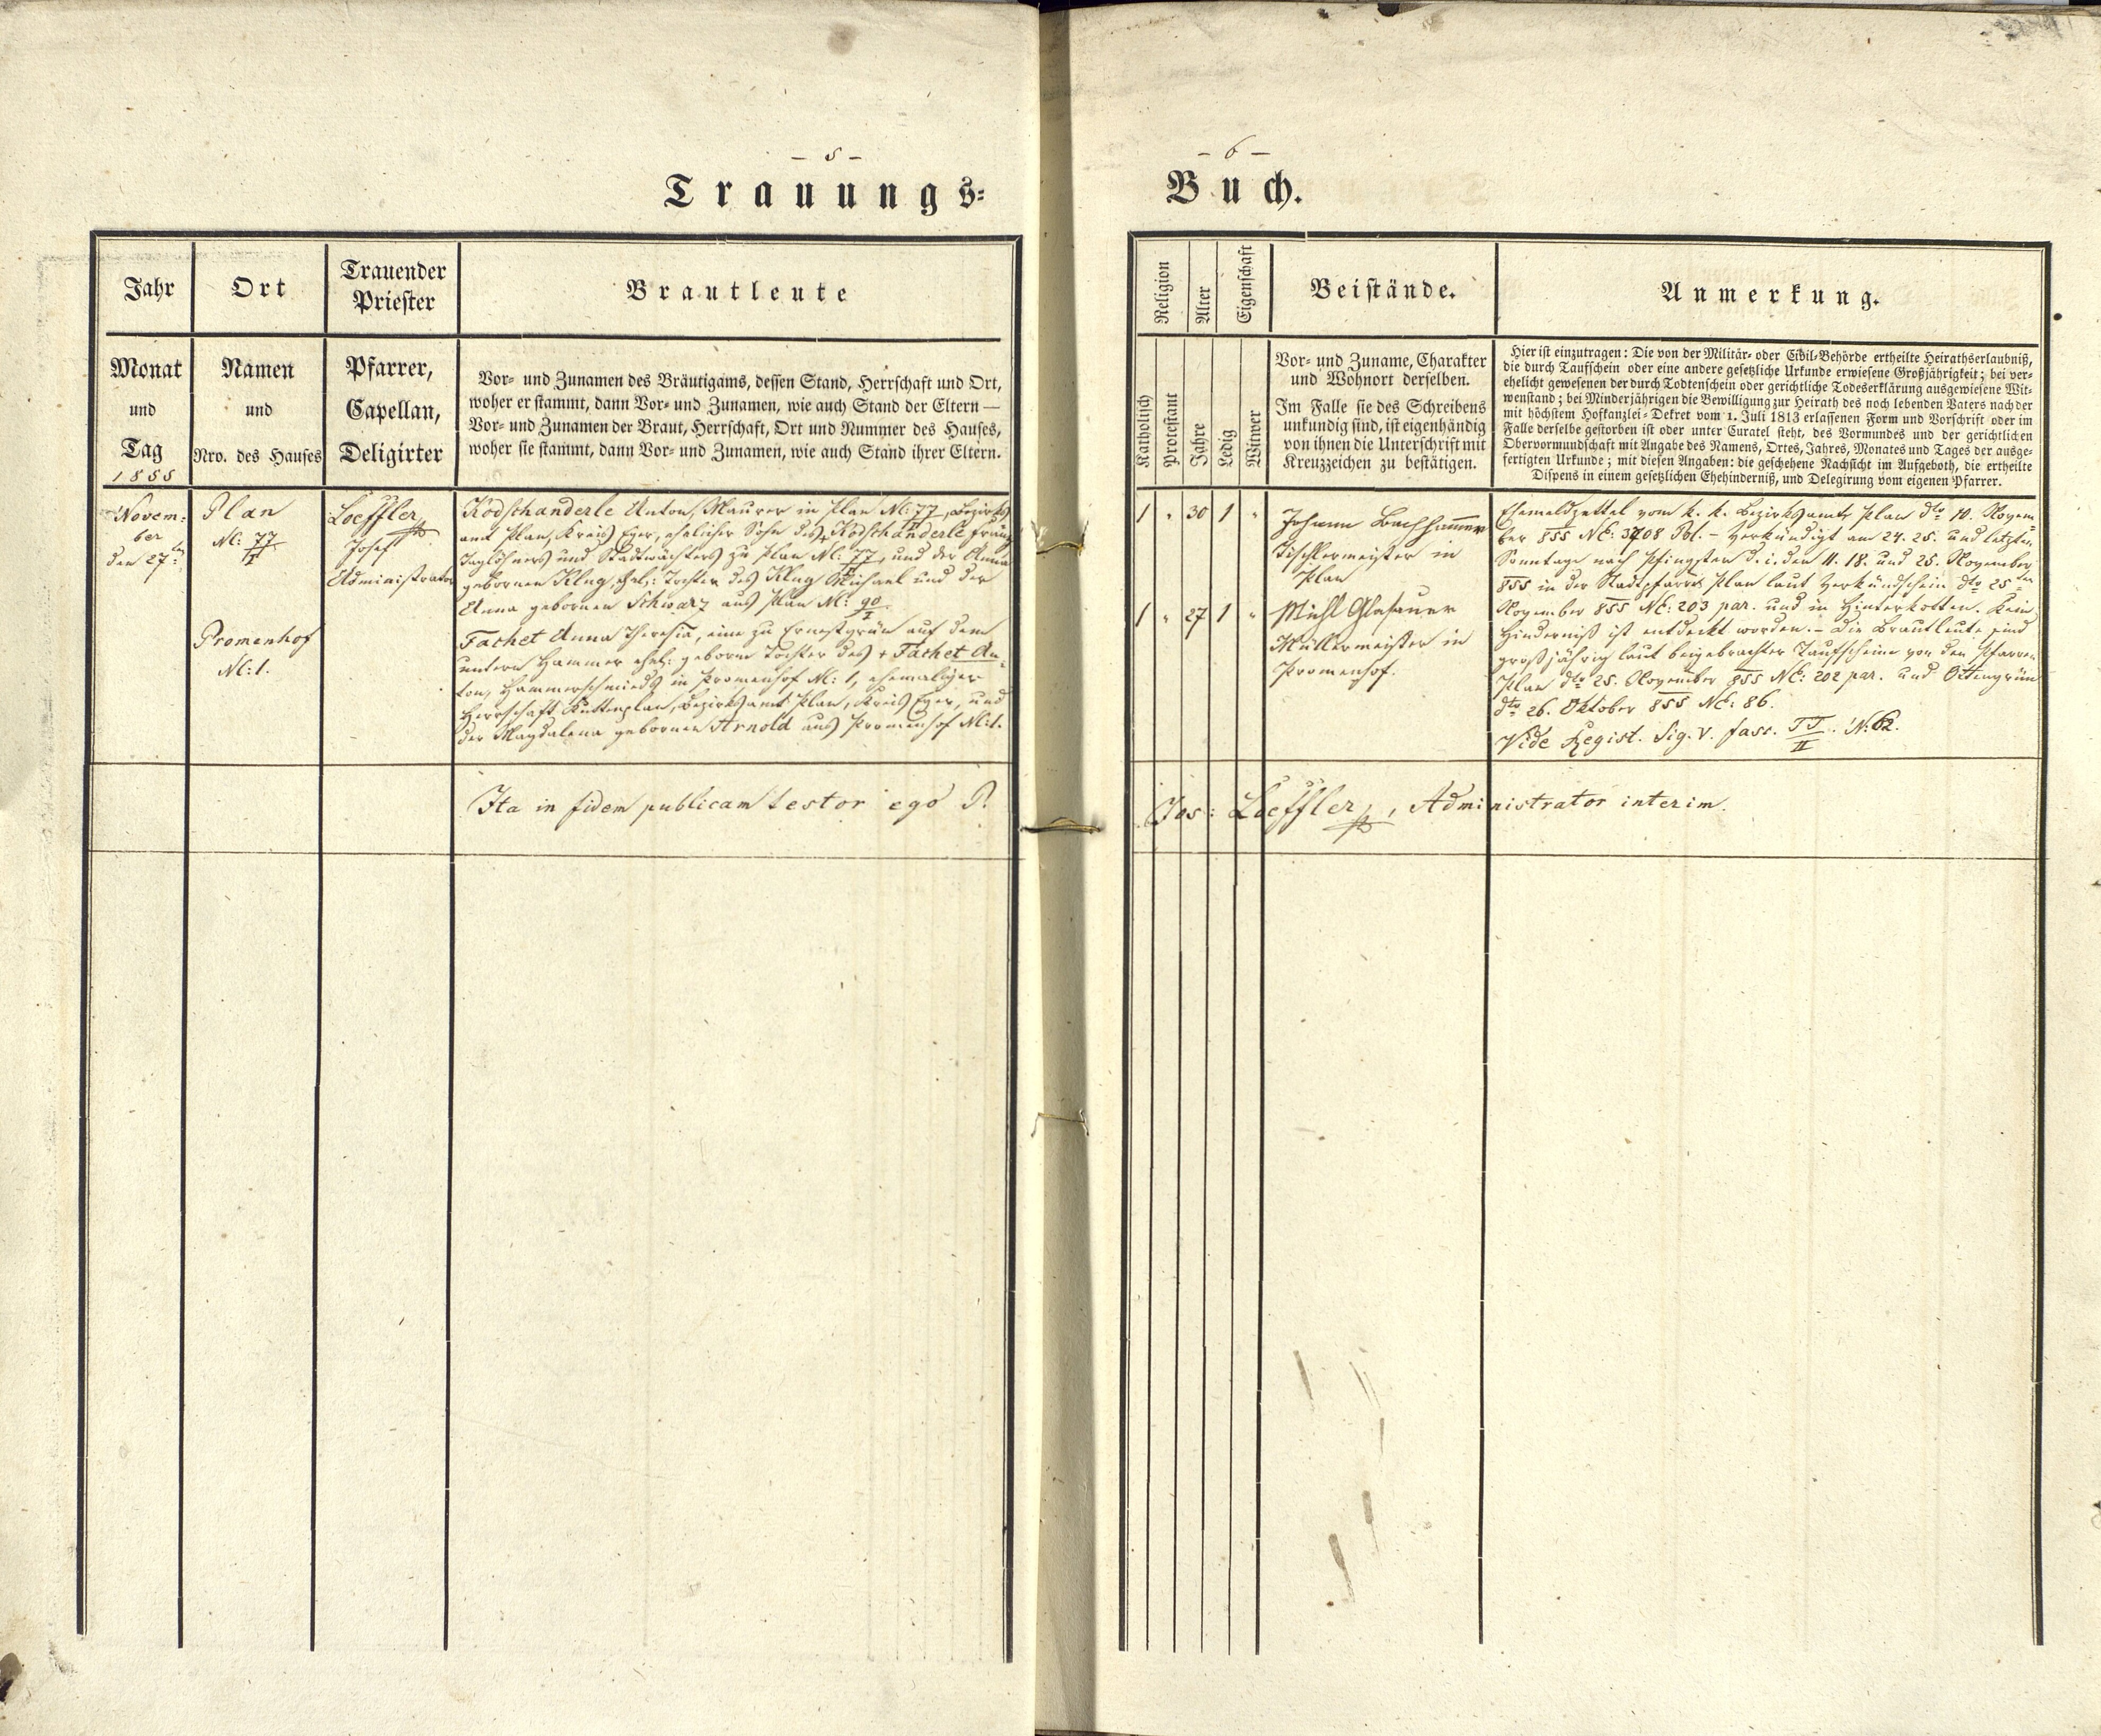 – 5 –
Trauungs=
Jahr
Ort
Trauender
Priester
Brautleute
Monat
und
Tag
1855
Namen
und
Nro. des Hauses
Pfarrer,
Capellan,
Deligirter
Vor- und Zunamen des Bräutigams, dessen Stand, Herrschaft und Ort,
woher er stammt, dann Vor- und Zunamen, wie auch Stand der Eltern —
Vor- und Zunamen der Braut, Herrschaft, Ort und Nummer des Hauses,
woher sie stammt, dann Vor- und Zunamen, wie auch Stand ihrer Eltern.
Novem=
ber
den 27ten
Plan
NC: 77/II
Loeffler
Josef
Administrator
Kodschanderle Anton, Maurer in Plan NC: 77/II, Bezirks=
amt Plan, Kreis Eger, ehelicher Sohn des Kodschanderle Franz
Taglöhners und Stadtwächters zu Plan NC: 77/II und der Anna
gebornen Klug, ehel: Tochter des Klug Michael und der
Anna gebornen Schwarz aus Plan NC: 90/I
Promenhof
NC: 1.
Fachet Anna Theresia, eine zu Ernestgrün auf dem
untern Hammer ehel: geborne Tochter des + Fachet An=
ton, Hammerschmieds in Promenhof NC: 1, ehemaliger
Herrschaft Kuttenplan, Bezirksamt Plan, Kreis Eger, und
der Magdalena gebornen Arnold aus Promenhof NC: 1.
Ita in fidem publicam testor ego P.
– 6 –
Buch.
Religion
Alter
Eigenschaft
Beistände.
Anmerkung.
Katholisch
Protestant
Jahre
Ledig
Witwer
Vor- und Zuname, Charakter
und Wohnort derselben.
Im Falle sie des Schreibens
unkundig sind, ist eigenhändig
von ihnen die Unterschrift mit
Kreuzzeichen zu bestätigen.
Hier ist einzutragen: Die von der Militär- oder Civil-Behörde ertheilte Heirathserlaubniß,
die durch Taufschein oder eine andere gesetzliche Urkunde erwiesene Großjährigkeit; bei ver-
ehelicht gewesenen der durch Todtenschein oder gerichtliche Todeserklärung ausgewiesene Wit-
wenstand; bei Minderjährigen die Bewilligung zur Heirath des noch lebenden Vaters nach der
mit höchstem Hofkanzlei-Dekret vom 1. Juli 1813 erlassenen Form und Vorschrift oder im
Falle derselbe gestorben ist oder unter Curatel steht, des Vormundes und der gerichtlichen
Obervormundschaft mit Angabe des Namens, Ortes, Jahres, Monates und Tages der ausge-
fertigten Urkunde; mit diesen Angaben: die geschehene Nachsicht im Aufgeboth, die ertheilte
Dispens in einem gesetzlichen Ehehinderniß, und Delegirung vom eigenen Pfarrer.
1 " 30 1 "
Johann Bachhammer
Tischlermeister in
Plan
1 " 27 1 "
Michl Glasauer
Müllermeister in
Promenhof.
Ehemeldzettel vom k. k. Bezirksamte Plan dto 10. Novem=
ber 855 NE: 3708 Pol. – Verkündigt am 24. 25. und letzten
Sonntage nach Pfingsten d. i. den 11. 18. und 25. November
855 in der Stadtpfarre Plan laut Verkündschein dto 25ten
November 855 NE: 203 par. und in Hinterkotten. Kein
Hinderniß ist entdeckt worden. – Die Brautleute sind
großjährig laut beigebrachter Taufscheine von den Pfarren
Plan dto 25. November 855 NE: 202 par. und Ottengrün
dto 26. Oktober 855 NE: 86.
Vide Regist. Sig. V. fasc. TT/II. N: 62.
Jos: Loeffler, Administrator interim.